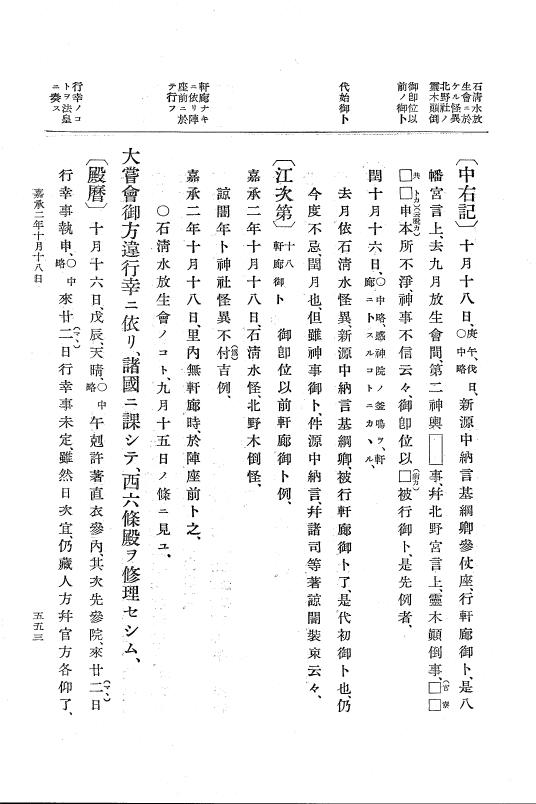 石清水放
生會ニ於
ケル怪異
北野社ノ
靈木顚倒
御卽位以
前ノ御卜
代始御卜
軒廊ナキ
ニ依リ陣
座前ニ於
テ行フ
行幸ノコ
トヲ法皇
ニ奏ス
〔中右記〕十月十八日、庚午、伐日、○中略新源中納言基綱卿參仗座、行軒廊御卜、是八
幡宮言上、去九月放生會間、第二神輿□事、幷北野宮言上、靈木顚倒事、□□(官寮)
□□申本所不淨、神事不信云々、御卽位以□(前カ)被行御卜、是先例者、
閏十月十六日、○中略、感神院ノ釜鳴ヲ、軒廊ニトスルコトニカヽル、
去月依石淸水怪異、新源中納言基綱卿、被行軒廊御卜了、是代初御卜也、仍
今度不忌閏月也、但雖神事御卜、件源中納言、幷諸司等著諒闇裝束云々、
〔江次第〕十八軒廊御卜 御卽位以前軒廊御卜例、
嘉承二年十月十八日、石淸水怪、北野木倒怪、
諒闇年卜神社怪異不付吉例、
嘉承二年十月十八日、里內無軒廊時、於陣座前卜之、
○石淸水放生會ノコト、九月十五日ノ條ニ見ユ、
大嘗會御方違行幸ニ依リ、諸國ニ課シテ、西六條殿ヲ修理セシム、
〔殿曆〕十月十六日、戊辰、天晴、○中略午剋許著直衣參內、其次先參院、來廿二(マヽ)日
行幸事執申、○中略來廿二(マヽ)日行幸事未定、雖然日次宜、仍藏人方幷官方各仰了、
嘉承二年十月十八日
五五三